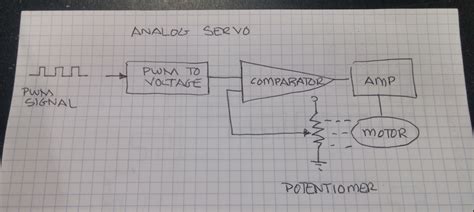 ANALOG SERVO
PWM
SIGNAL
PWM TO
VOLTAGE
COMPARATOR
AMP
MOTOR
POTENTIOMER